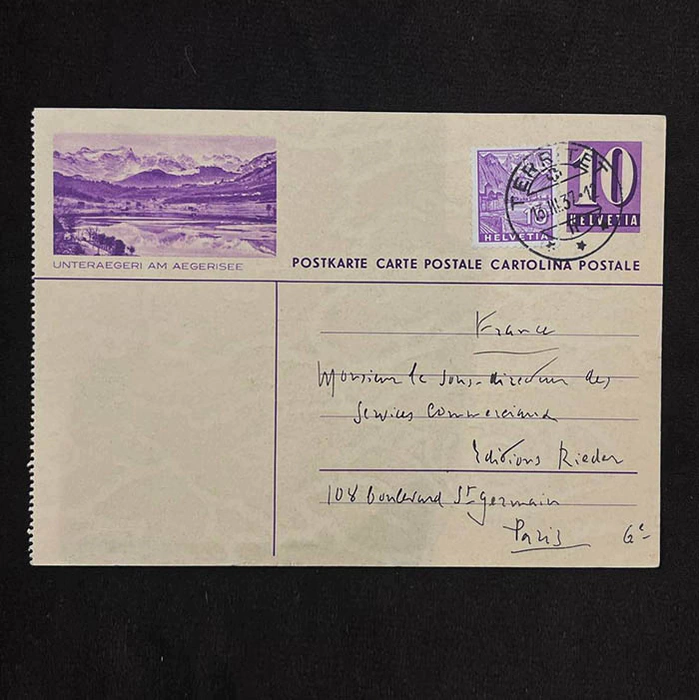 UNTERAEGERI AM AEGERISEE
10
HELVETIA
10
HELVETIA
TERRITET
15.III.37
POSTKARTE CARTE POSTALE CARTOLINA POSTALE
France
Monsieur le sous-directeur des
Services Commerciaux
Editions Rieder
108 boulevard St germain
Paris 6e